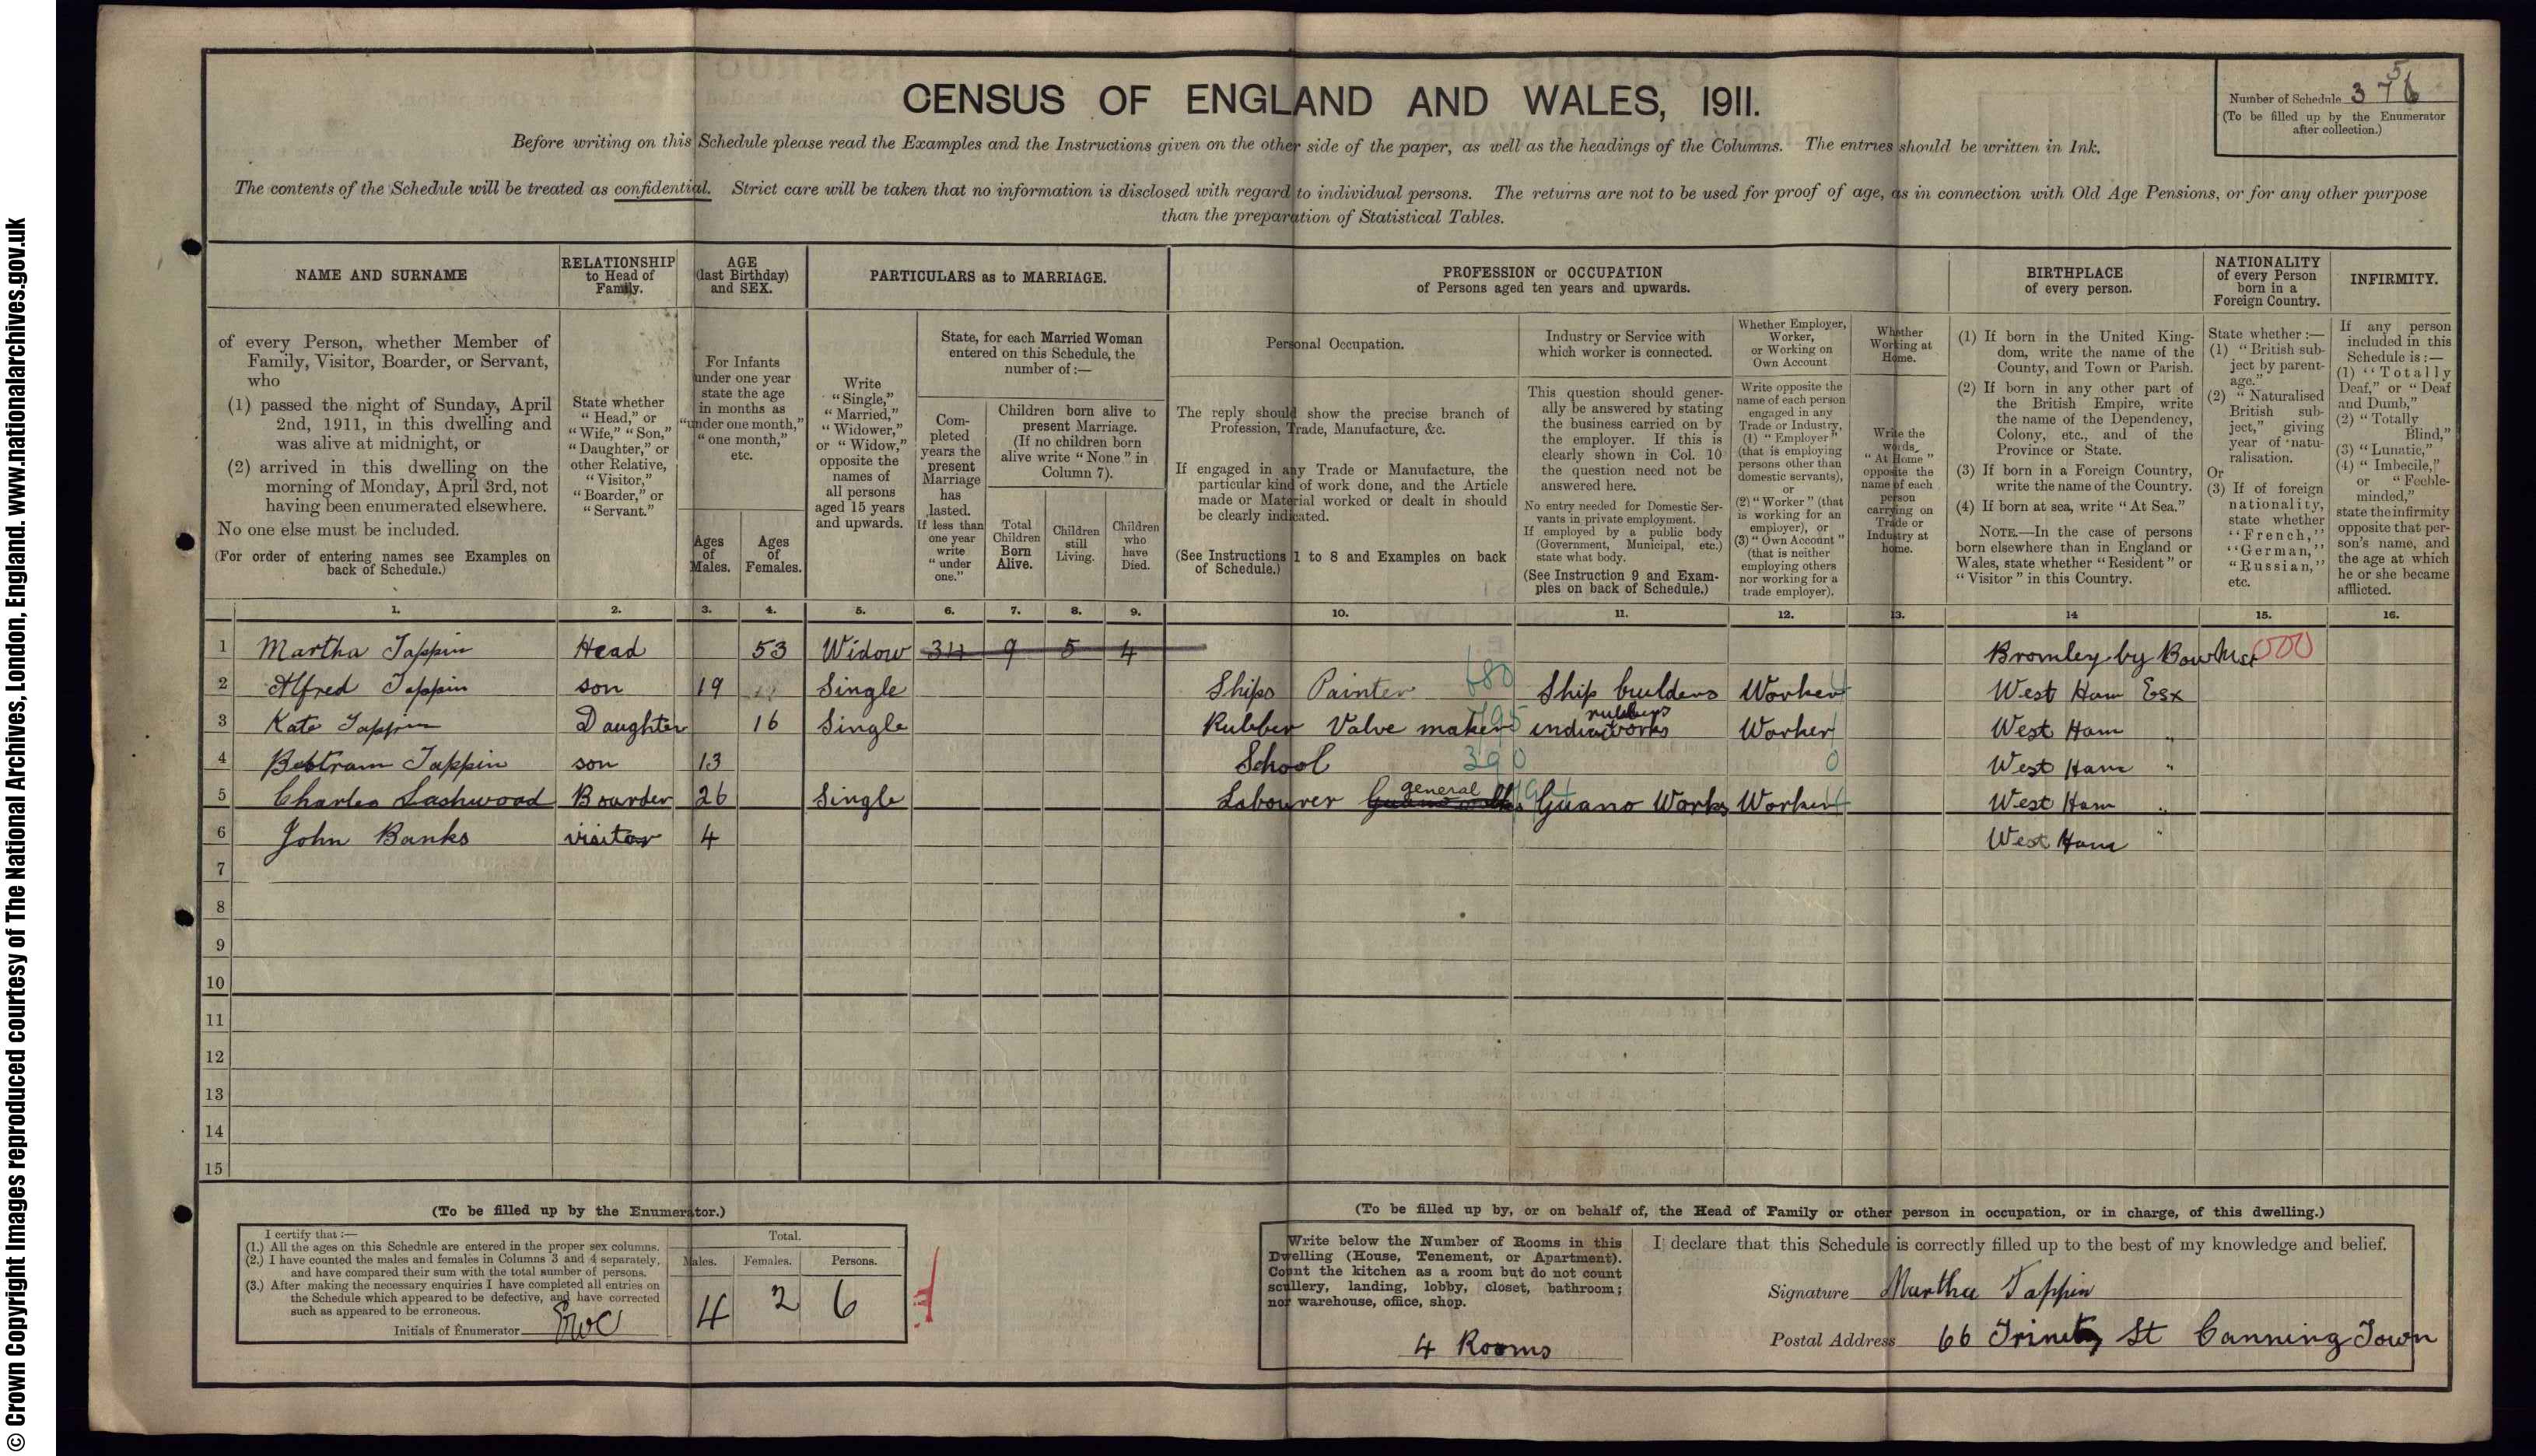 © Crown Copyright Images reproduced courtesy of The National Archives, London, England. www.nationalarchives.gov.uk
CENSUS OF ENGLAND AND WALES, 1911.
Number of Schedule 375
(To be filled up by the Enumerator
after collection.)
Before writing on this Schedule please read the Examples and the Instructions given on the other side of the paper, as well as the headings of the Columns. The entries should be written in Ink.
The contents of the Schedule will be treated as confidential. Strict care will be taken that no information is disclosed with regard to individual persons. The returns are not to be used for proof of age, as in connection with Old Age Pensions, or for any other purpose
than the preparation of Statistical Tables.
NAME AND SURNAME
RELATIONSHIP
to Head of
Family.
AGE
(last Birthday)
and SEX.
PARTICULARS as to MARRIAGE.
PROFESSION or OCCUPATION
of Persons aged ten years and upwards.
BIRTHPLACE
of every person.
NATIONALITY
of every Person
born in a
Foreign Country.
INFIRMITY.
of every Person, whether Member of
Family, Visitor, Boarder, or Servant,
who
(1) passed the night of Sunday, April
2nd, 1911, in this dwelling and
was alive at midnight, or
(2) arrived in this dwelling on the
morning of Monday, April 3rd, not
having been enumerated elsewhere.
No one else must be included.
(For order of entering names see Examples on
back of Schedule.)
State whether
"Head," or
"Wife," "Son,"
"Daughter," or
other Relative,
"Visitor,"
"Boarder," or
"Servant."
For Infants
under one year
state the age
in months as
"under one month,"
"one month,"
etc.
Ages
of
Males.
Ages
of
Females.
Write
"Single,"
"Married,"
"Widower,"
or "Widow,"
opposite the
names of
all persons
aged 15 years
and upwards.
State, for each Married Woman
entered on this Schedule, the
number of:—
Com-
pleted
years the
present
Marriage
has
lasted.
If less than
one year
write
"under
one."
Children born alive to
present Marriage.
(If no children born
alive write "None" in
Column 7).
Total
Children
Born
Alive.
Children
still
Living.
Children
who
have
Died.
Personal Occupation.
The reply should show the precise branch of
Profession, Trade, Manufacture, &c.
If engaged in any Trade or Manufacture, the
particular kind of work done, and the Article
made or Material worked or dealt in should
be clearly indicated.
(See Instructions 1 to 8 and Examples on back
of Schedule.)
Industry or Service with
which worker is connected.
This question should gener-
ally be answered by stating
the business carried on by
the employer. If this is
clearly shown in Col. 10
the question need not be
answered here.
No entry needed for Domestic Ser-
vants in private employment.
If employed by a public body
(Government, Municipal, etc.)
state what body.
(See Instruction 9 and Exam-
ples on back of Schedule.)
Whether Employer,
Worker,
or Working on
Own Account
Write opposite the
name of each person
engaged in any
Trade or Industry,
(1) "Employer"
(that is employing
persons other than
domestic servants),
or
(2) "Worker" (that
is working for an
employer), or
(3) "Own Account"
(that is neither
employing others
nor working for a
trade employer).
Whether
Working at
Home.
Write the
words
"At Home"
opposite the
name of each
person
carrying on
Trade or
Industry at
home.
(1) If born in the United King-
dom, write the name of the
County, and Town or Parish.
(2) If born in any other part of
the British Empire, write
the name of the Dependency,
Colony, etc., and of the
Province or State.
(3) If born in a Foreign Country,
write the name of the Country.
(4) If born at sea, write "At Sea."
NOTE.—In the case of persons
born elsewhere than in England or
Wales, state whether "Resident" or
"Visitor" in this Country.
State whether:—
(1) "British sub-
ject by parent-
age."
(2) "Naturalised
British sub-
ject," giving
year of natu-
ralisation.
Or
(3) If of foreign
nationality,
state whether
"French,"
"German,"
"Russian,"
etc.
If any person
included in this
Schedule is:—
(1) "Totally
Deaf," or "Deaf
and Dumb,"
(2) "Totally
Blind,"
(3) "Lunatic,"
(4) "Imbecile,"
or "Feeble-
minded,"
state the infirmity
opposite that per-
son's name, and
the age at which
he or she became
afflicted.
1. 2. 3. 4. 5. 6. 7. 8. 9. 10. 11. 12. 13. 14 15. 16.
1 Martha Tappin Head 53 Widow 34 9 5 4 Bromley by Bow 000
2 Alfred Tappin son 19 Single Ships Painter 680 Ship builders Worker West Ham Esx
3 Kate Tappin Daughter 16 Single Rubber Valve maker 795 india rubbers works Worker West Ham "
4 Bertram Tappin son 13 School 390 0 West Ham "
5 Charles Lashwood Boarder 26 Single Labourer general Guano Works Worker West Ham "
6 John Banks visitor 4 West Ham "
7
8
9
10
11
12
13
14
15
(To be filled up by the Enumerator.)
I certify that:—
(1.) All the ages on this Schedule are entered in the proper sex columns.
(2.) I have counted the males and females in Columns 3 and 4 separately,
and have compared their sum with the total number of persons.
(3.) After making the necessary enquiries I have completed all entries on
the Schedule which appeared to be defective, and have corrected
such as appeared to be erroneous.
Initials of Enumerator EWC
Total.
Males. Females. Persons.
4 2 6
(To be filled up by, or on behalf of, the Head of Family or other person in occupation, or in charge, of this dwelling.)
Write below the Number of Rooms in this
Dwelling (House, Tenement, or Apartment).
Count the kitchen as a room but do not count
scullery, landing, lobby, closet, bathroom;
nor warehouse, office, shop.
4 Rooms
I declare that this Schedule is correctly filled up to the best of my knowledge and belief.
Signature Martha Tappin
Postal Address 66 Trinity St Canning Town